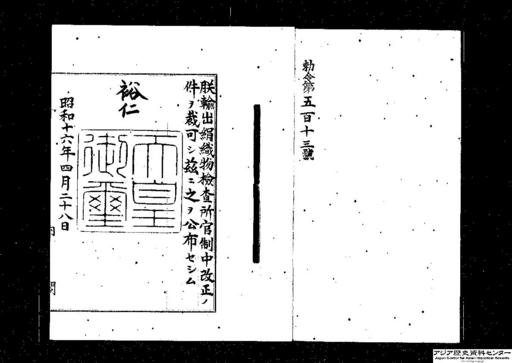 勅令第五百十三號
朕輸出絹織物檢査所官制中改正ノ
件ヲ裁可シ茲ニ之ヲ公布セシム
裕仁
天皇
御璽
昭和十六年四月二十八日
内
閣
アジア歴史資料センター
Japan Center for Asian Historical Records